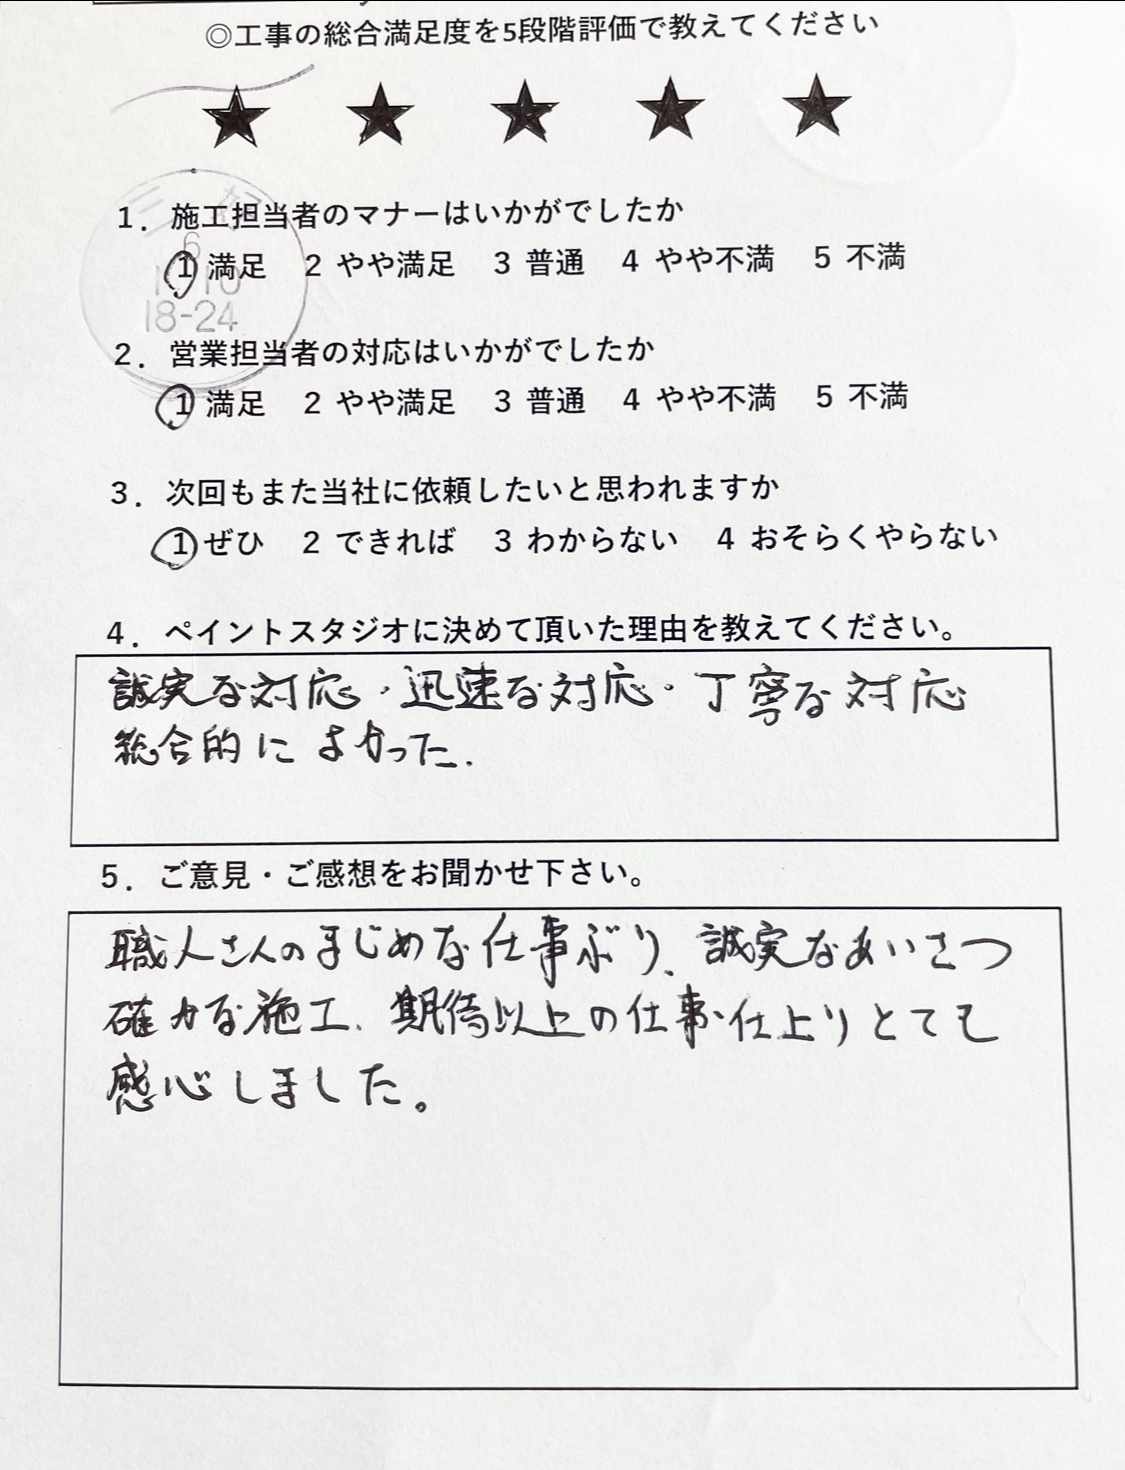 ◎工事の総合満足度を5段階評価で教えてください
★ ★ ★ ★ ★
1．施工担当者のマナーはいかがでしたか
1 満足 2 やや満足 3 普通 4 やや不満 5 不満
2．営業担当者の対応はいかがでしたか
1 満足 2 やや満足 3 普通 4 やや不満 5 不満
3．次回もまた当社に依頼したいと思われますか
1 ぜひ 2 できれば 3 わからない 4 おそらくやらない
4．ペイントスタジオに決めて頂いた理由を教えてください。
誠実な対応・迅速な対応・丁寧な対応
総合的によかった.
5．ご意見・ご感想をお聞かせ下さい。
職人さんのまじめな仕事ぶり、誠実なあいさつ
確かな施工、期待以上の仕事・仕上りとても
感心しました。
18-24